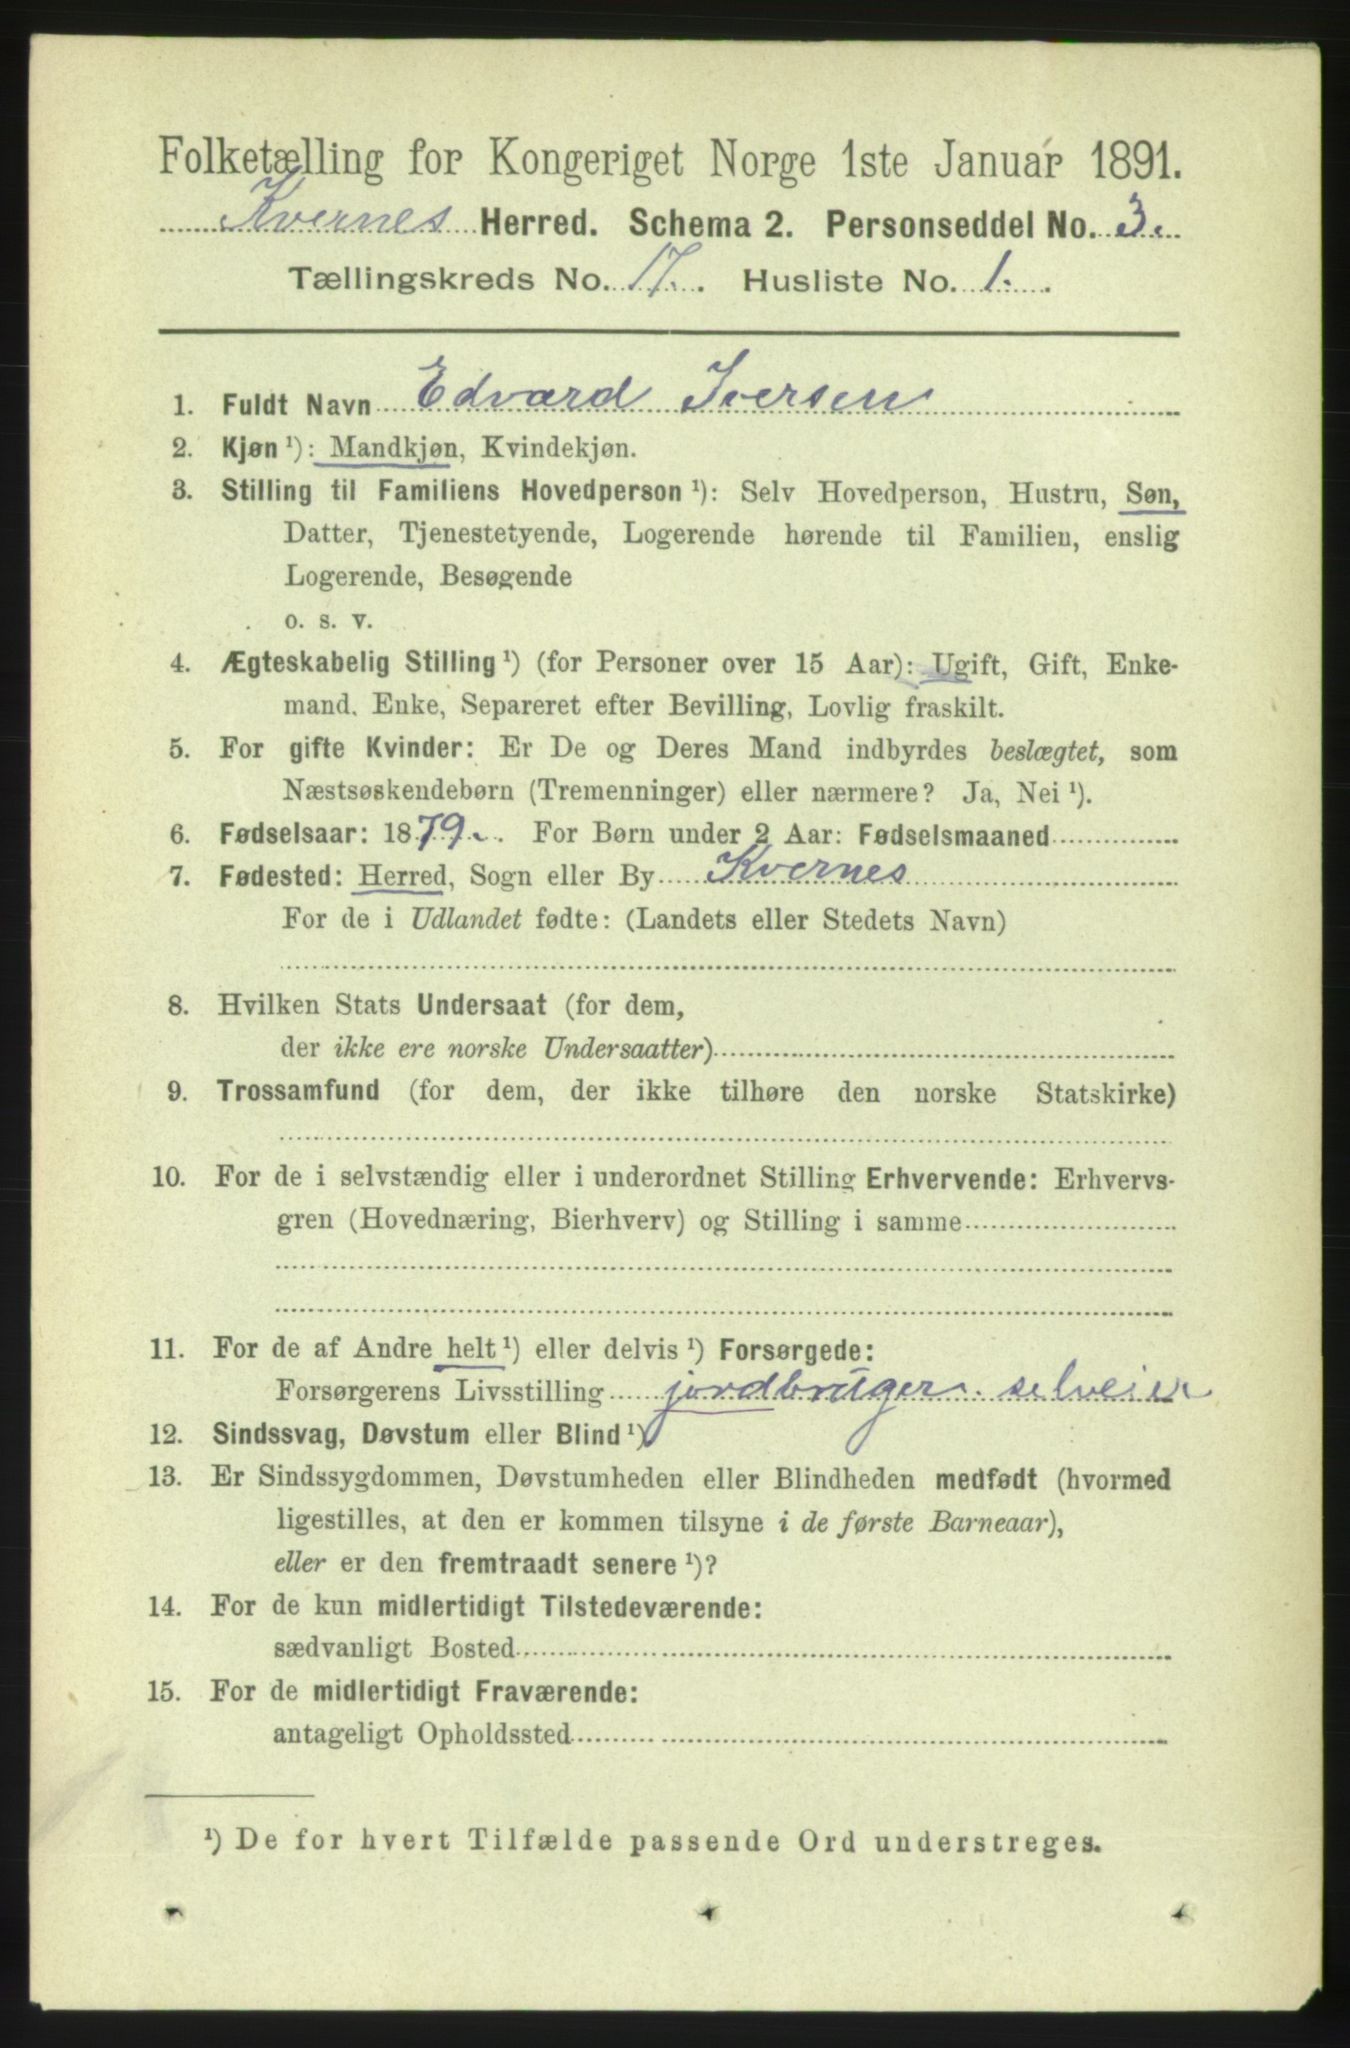 Folketælling for Kongeriget Norge 1ste Januar 1891.
Kvernes Herred. Schema 2. Personseddel No. 3.
Tællingskreds No. 17. Husliste No. 1.
1. Fuldt Navn Edvard Iversen
2. Kjøn ¹): Mandkjøn, Kvindekjøn.
3. Stilling til Familiens Hovedperson ¹): Selv Hovedperson, Hustru, Søn,
Datter, Tjenestetyende, Logerende hørende til Familien, enslig
Logerende, Besøgende
o. s. v.
4. Ægteskabelig Stilling ¹) (for Personer over 15 Aar): Ugift, Gift, Enke-
mand, Enke, Separeret efter Bevilling, Lovlig fraskilt.
5. For gifte Kvinder: Er De og Deres Mand indbyrdes beslægtet, som
Næstsøskendebørn (Tremenninger) eller nærmere? Ja, Nei ¹).
6. Fødselsaar: 1879. For Børn under 2 Aar: Fødselsmaaned
7. Fødested: Herred, Sogn eller By Kvernes
For de i Udlandet fødte: (Landets eller Stedets Navn)
8. Hvilken Stats Undersaat (for dem,
der ikke ere norske Undersaatter)
9. Trossamfund (for dem, der ikke tilhøre den norske Statskirke)
10. For de i selvstændig eller i underordnet Stilling Erhvervende: Erhvervs-
gren (Hovednæring, Bierhverv) og Stilling i samme
11. For de af Andre helt ¹) eller delvis ¹) Forsørgede:
Forsørgerens Livsstilling jordbruger. selveier
12. Sindssvag, Døvstum eller Blind ¹)
13. Er Sindssygdommen, Døvstumheden eller Blindheden medfødt (hvormed
ligestilles, at den er kommen tilsyne i de første Barneaar),
eller er den fremtraadt senere ¹)?
14. For de kun midlertidigt Tilstedeværende:
sædvanligt Bosted
15. For de midlertidigt Fraværende:
antageligt Opholdssted
¹) De for hvert Tilfælde passende Ord understreges.